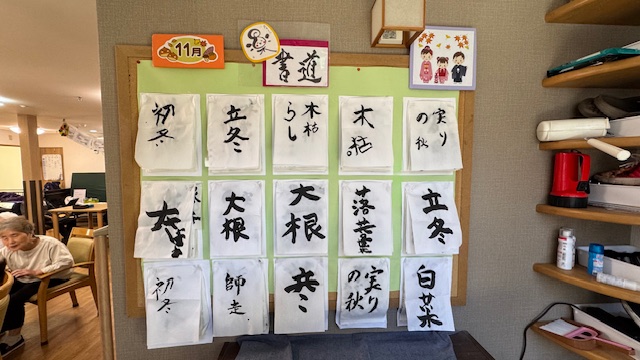 11月
書道
初冬
立冬
木枯
らし
実り
の秋
大根
大根
落葉
立冬
初冬
師走
実り
の秋
白菜